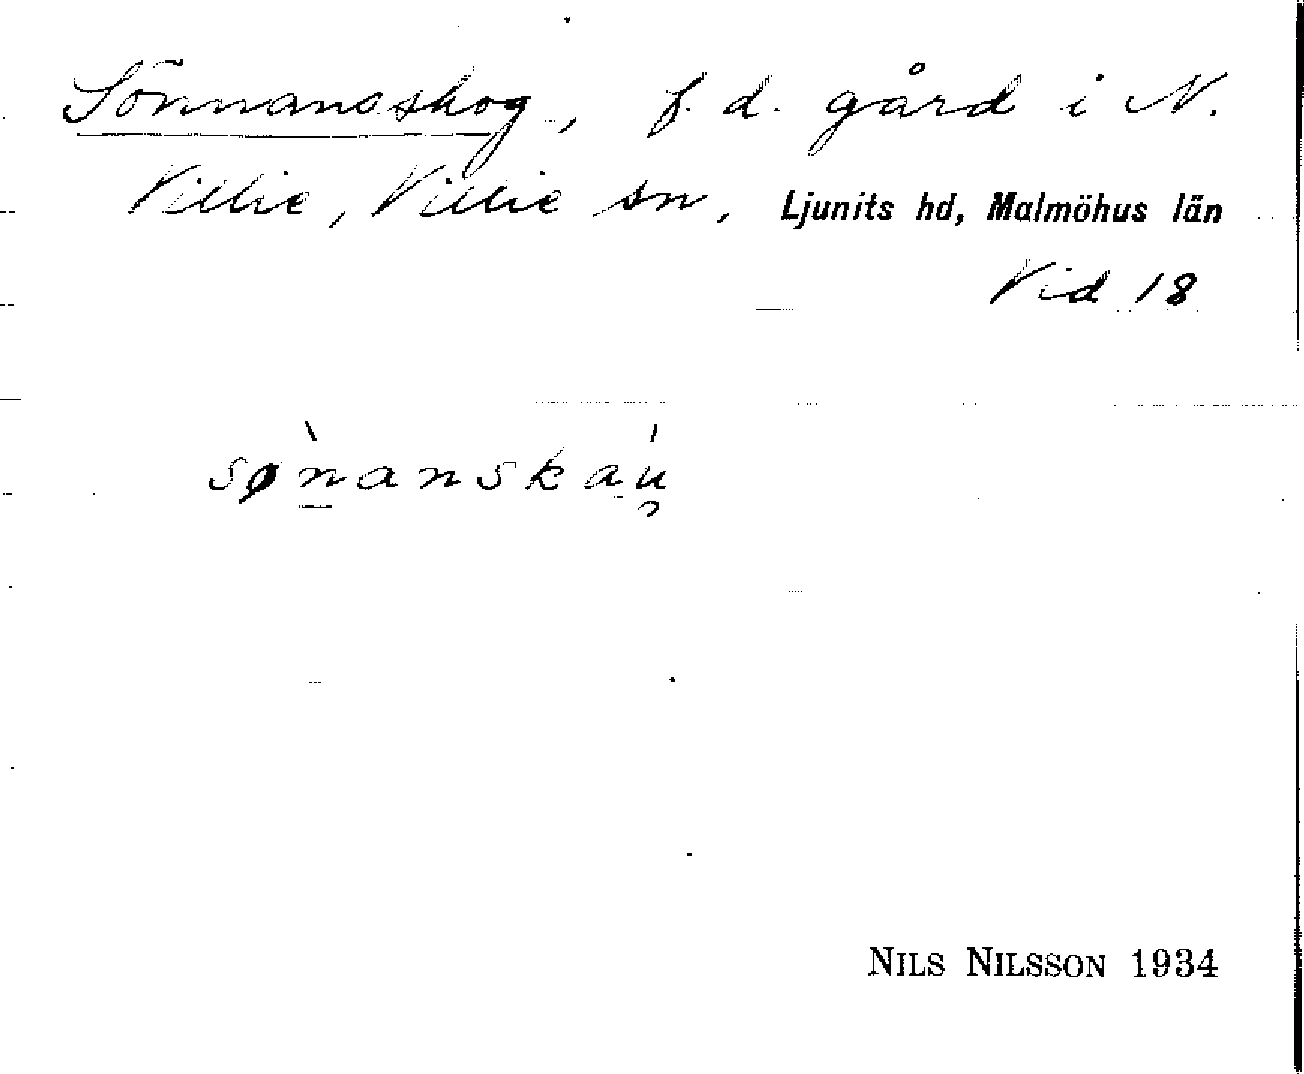 Sönnansskog, f. d. gård i N.
Villie, Villie sn, Ljunits hd, Malmöhus län
Vid 18
sø̀nanskáu̯
NILS NILSSON 1934